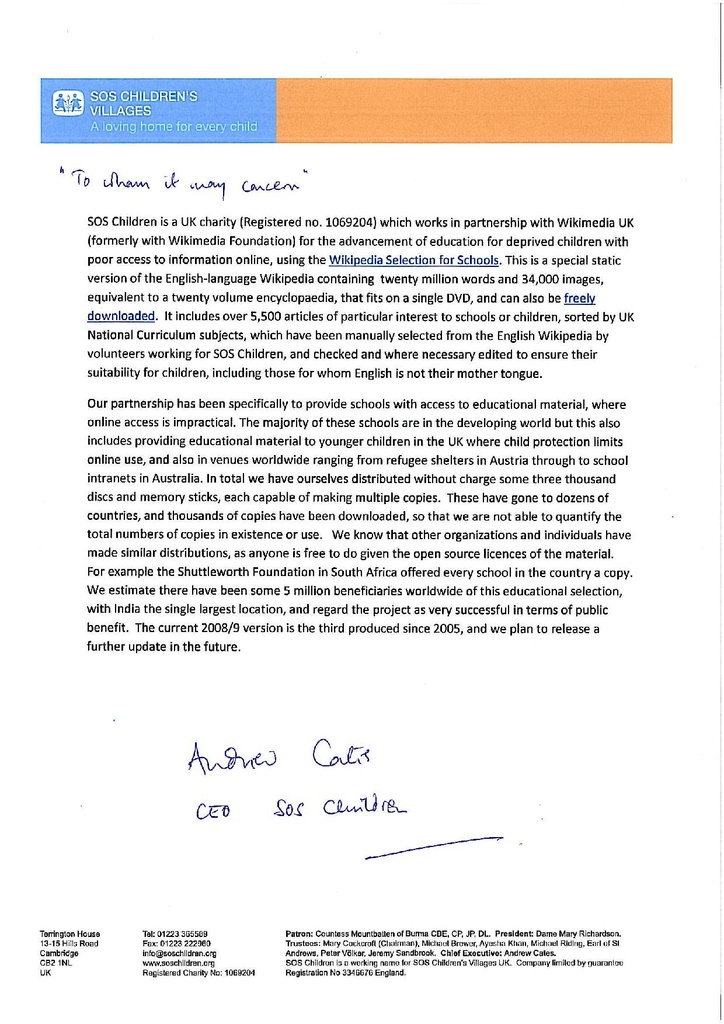 SOS CHILDREN'S
VILLAGES
A loving home for every child
"To whom it may concern"
SOS Children is a UK charity (Registered no. 1069204) which works in partnership with Wikimedia UK
(formerly with Wikimedia Foundation) for the advancement of education for deprived children with
poor access to information online, using the Wikipedia Selection for Schools. This is a special static
version of the English-language Wikipedia containing twenty million words and 34,000 images,
equivalent to a twenty volume encyclopaedia, that fits on a single DVD, and can also be freely
downloaded. It includes over 5,500 articles of particular interest to schools or children, sorted by UK
National Curriculum subjects, which have been manually selected from the English Wikipedia by
volunteers working for SOS Children, and checked and where necessary edited to ensure their
suitability for children, including those for whom English is not their mother tongue.
Our partnership has been specifically to provide schools with access to educational material, where
online access is impractical. The majority of these schools are in the developing world but this also
includes providing educational material to younger children in the UK where child protection limits
online use, and also in venues worldwide ranging from refugee shelters in Austria through to school
intranets in Australia. In total we have ourselves distributed without charge some three thousand
discs and memory sticks, each capable of making multiple copies. These have gone to dozens of
countries, and thousands of copies have been downloaded, so that we are not able to quantify the
total numbers of copies in existence or use. We know that other organizations and individuals have
made similar distributions, as anyone is free to do given the open source licences of the material.
For example the Shuttleworth Foundation in South Africa offered every school in the country a copy.
We estimate there have been some 5 million beneficiaries worldwide of this educational selection,
with India the single largest location, and regard the project as very successful in terms of public
benefit. The current 2008/9 version is the third produced since 2005, and we plan to release a
further update in the future.
Andrew Cates
CEO SOS Children
Terrington House
13-15 Hills Road
Cambridge
CB2 1NL
UK
Tel: 01223 365589
Fax: 01223 222960
info@soschildren.org
www.soschildren.org
Registered Charity No: 1069204
Patron: Countess Mountbatten of Burma CBE, CP, JP, DL. President: Dame Mary Richardson.
Trustees: Mary Cockcroft (Chairman), Michael Brewer, Ayesha Khan, Michael Riding, Earl of St
Andrews, Peter Völker, Jeremy Sandbrook. Chief Executive: Andrew Cates.
SOS Children is a working name for SOS Children's Villages UK. Company limited by guarantee
Registration No 3346676 England.